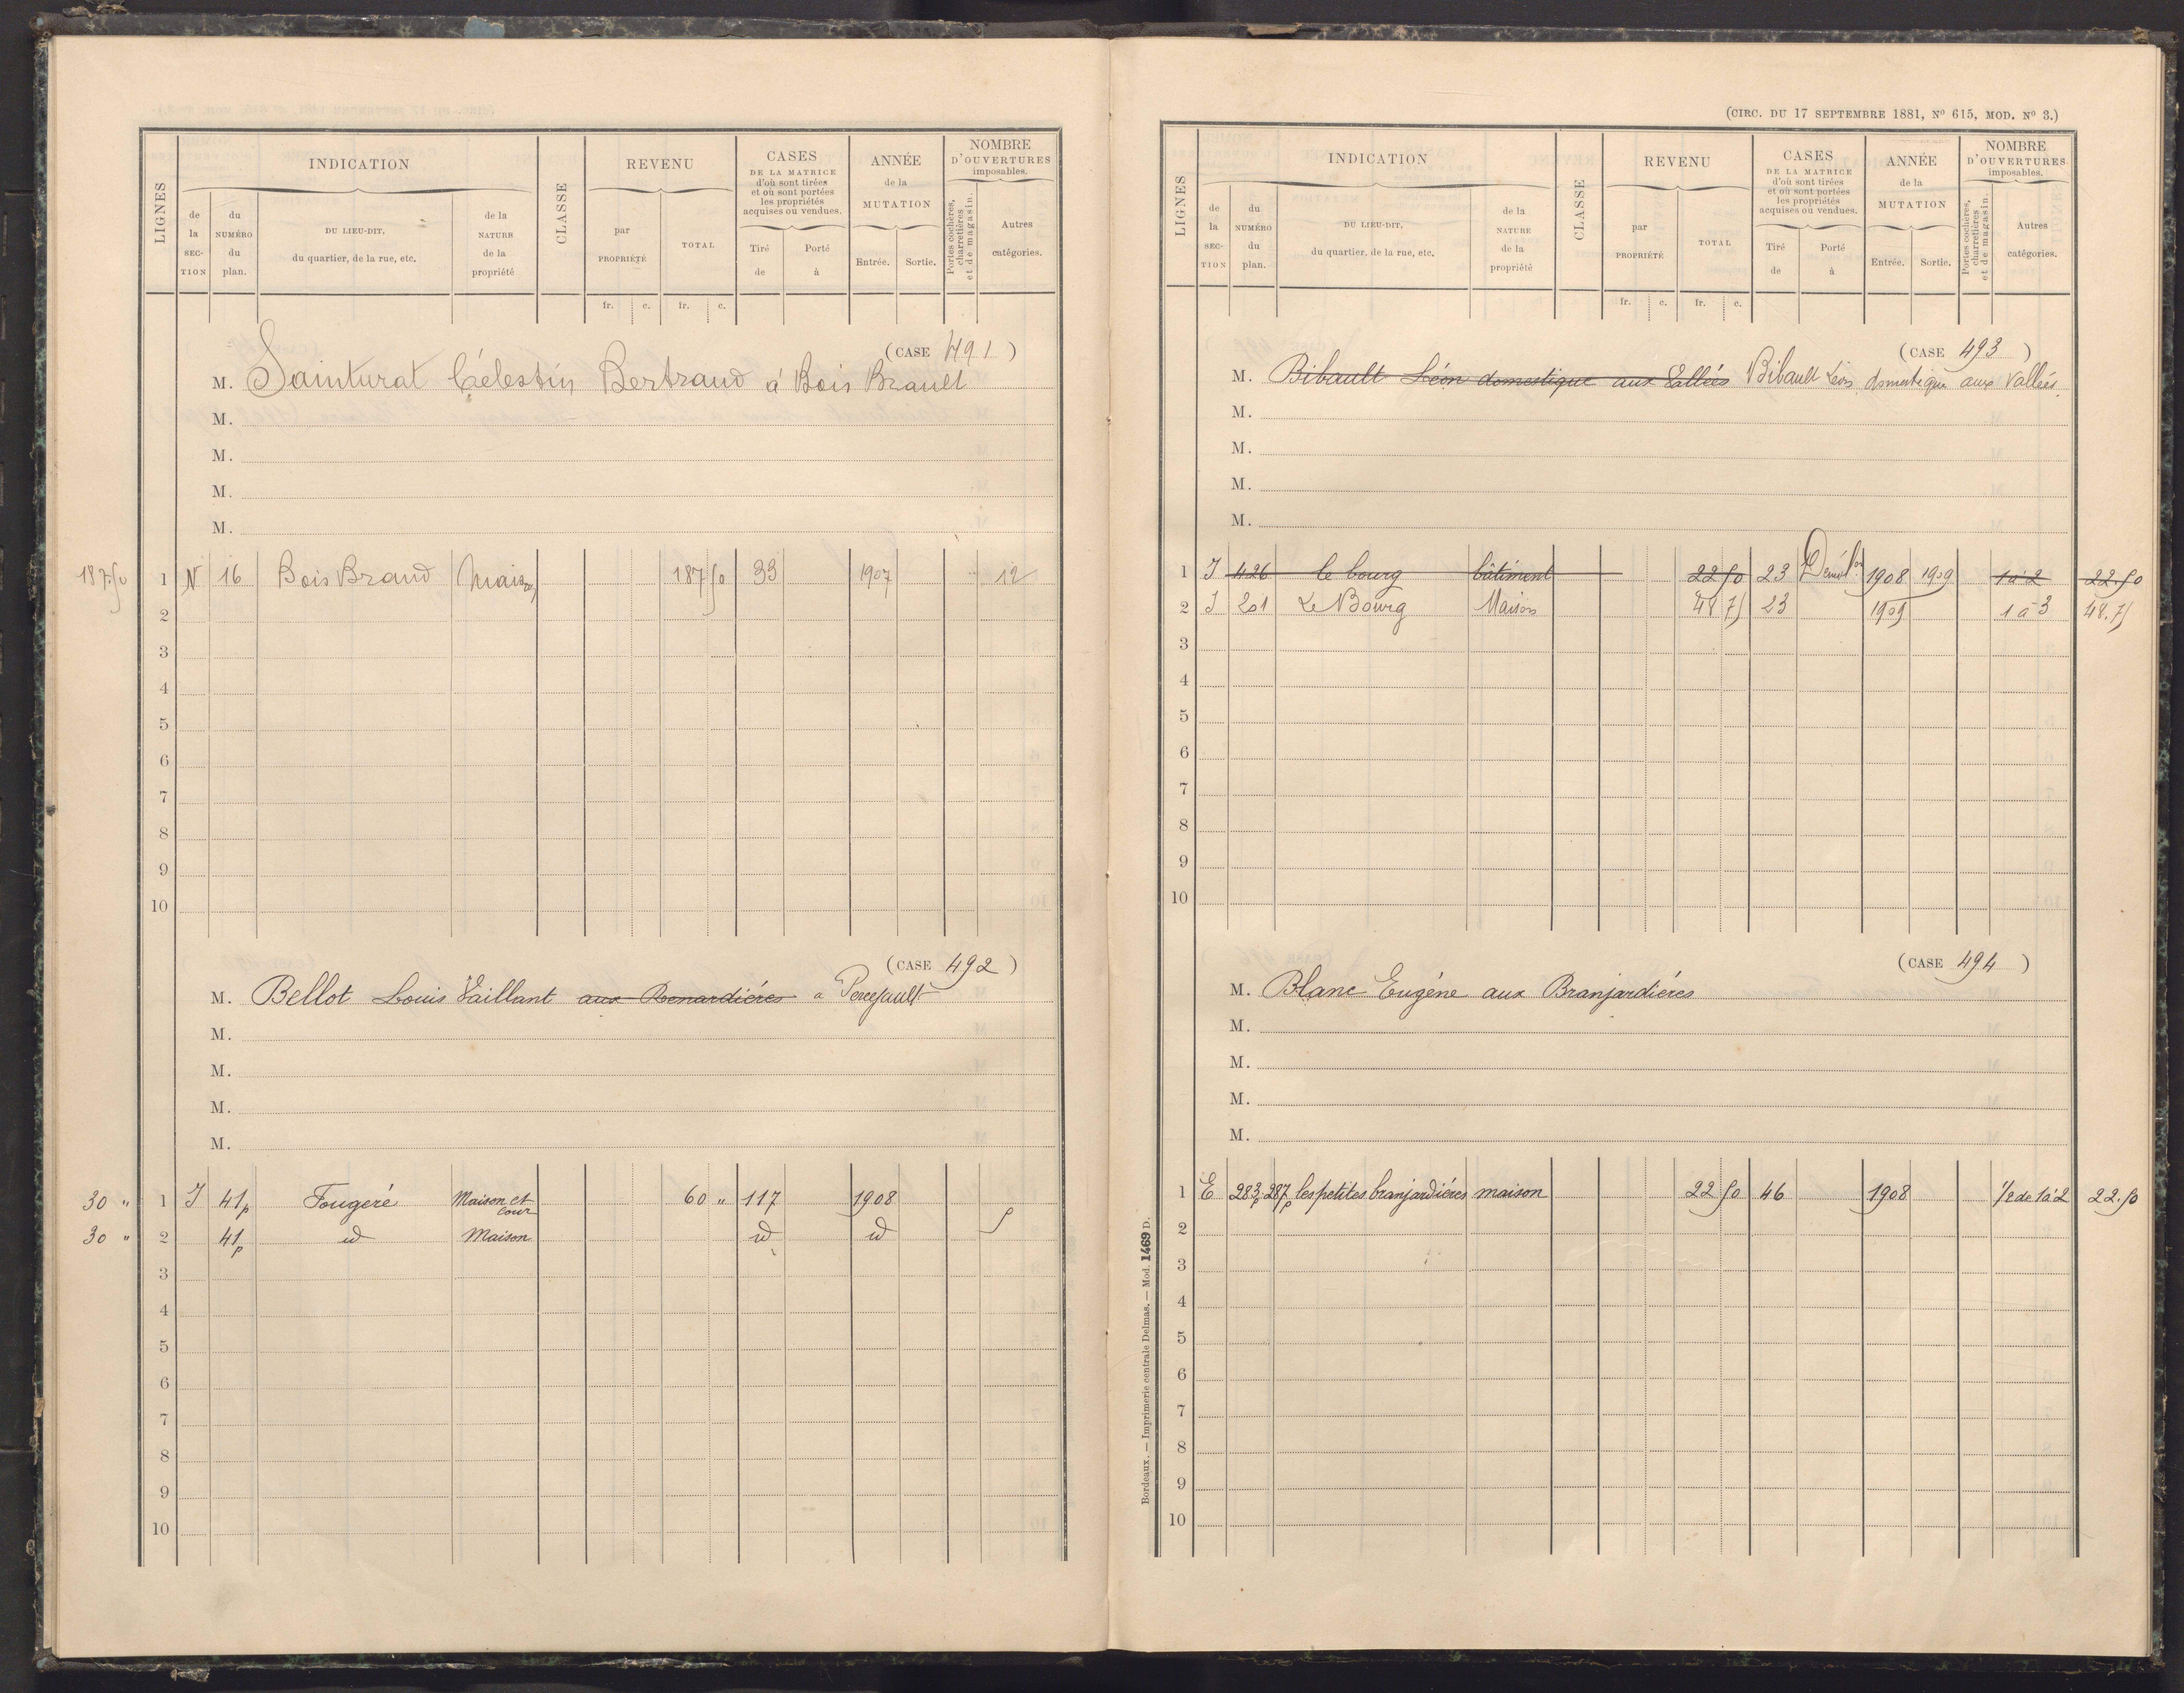 LIGNES
INDICATION
de la SECTION
du NUMÉRO du plan.
DU LIEU-DIT, du quartier, de la rue, etc.
de la NATURE de la propriété
CLASSE
REVENU
par PROPRIÉTÉ
TOTAL
fr. c. fr. c.
CASES DE LA MATRICE d'où sont tirées et où sont portées les propriétés acquises ou vendues.
Tiré de
Porté à
ANNÉE de la MUTATION
Entrée. Sortie.
NOMBRE D'OUVERTURES imposables.
Portes cochères, charretières et de magasin.
Autres catégories.
(CASE 491)
M. Sainturat Célestin Bertrand à Bois Brault
M.
M.
M.
M.
187.50 1 N 16 Bois Brand Maison 187 50 33 1907 12
2
3
4
5
6
7
8
9
10
(CASE 492)
M. Bellot Louis Vaillant aux Renardières a
M.
M.
M.
M.
30 " 1 J 41p Fougeré Maison et cour 60 " 117 1908 5
30 " 2 41p id Maison id id
3
4
5
6
7
8
9
10
(CIRC. DU 17 SEPTEMBRE 1881, Nº 615, MOD. Nº 3.)
LIGNES
INDICATION
de la SECTION
du NUMÉRO du plan.
DU LIEU-DIT, du quartier, de la rue, etc.
de la NATURE de la propriété
CLASSE
REVENU
par PROPRIÉTÉ
TOTAL
fr. c. fr. c.
CASES DE LA MATRICE d'où sont tirées et où sont portées les propriétés acquises ou vendues.
Tiré de
Porté à
ANNÉE de la MUTATION
Entrée. Sortie.
NOMBRE D'OUVERTURES imposables.
Portes cochères, charretières et de magasin.
Autres catégories.
(CASE 493)
M. Bibault Léon domestique aux Vallées Bibault Léon domestique aux Vallées
M.
M.
M.
M.
1 J 426 le bourg bâtiment 22 50 23 Démol.on 1908 1909 1 à 2 22.50
2 J 201 Le Bourg Maison 48 75 23 1909 1 à 3 48.75
3
4
5
6
7
8
9
10
(CASE 494)
M. Blanc Eugène aux Branjardières
M.
M.
M.
M.
1 E 283p 287p les petites branjardières maison 22 50 46 1908 1/2 de 1 à 2 22.50
2
3
4
5
6
7
8
9
10
Bordeaux. — Imprimerie centrale Delmas. — Mod. 1469 D.